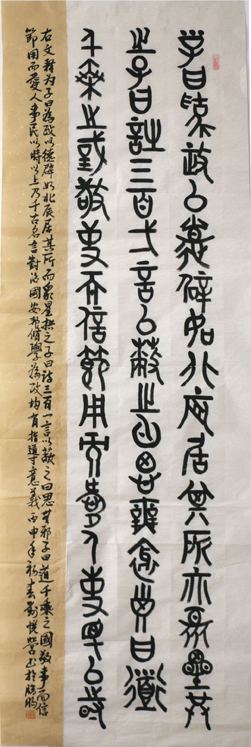 子曰為政以德辟如北辰居其所而眾星共
之子曰詩三百一言以蔽之曰思無邪子曰道
千乘之或敬事而信節用而愛人事民以時
右文释为子曰為政以德辟如北辰居其所而眾星拱之子曰詩三百一言以蔽之曰思無邪子曰道千乘之國敬事而信
節用而愛人事民以時以上乃千古名言對治國安邦學務政均有指導意義丙申年初春劉書於